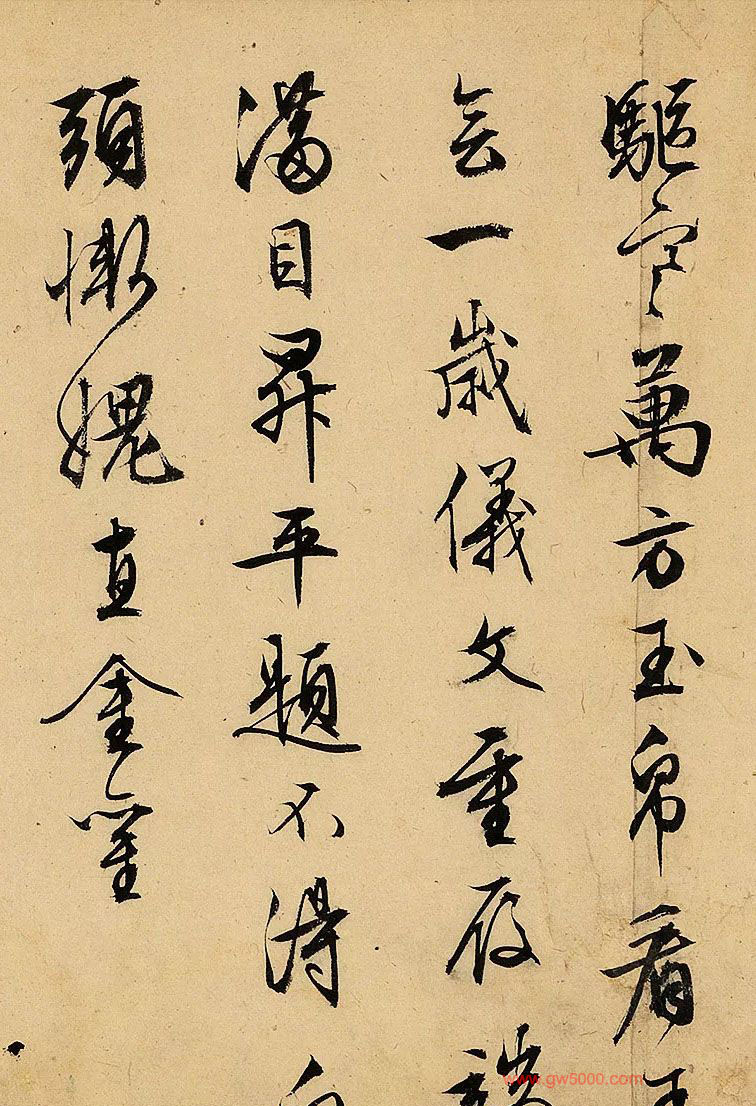 驅寒萬方玉帛看王
會一歲儀文重履
滿目昇平題不得白
頭慚媿直金鑾
www.gw5000.com